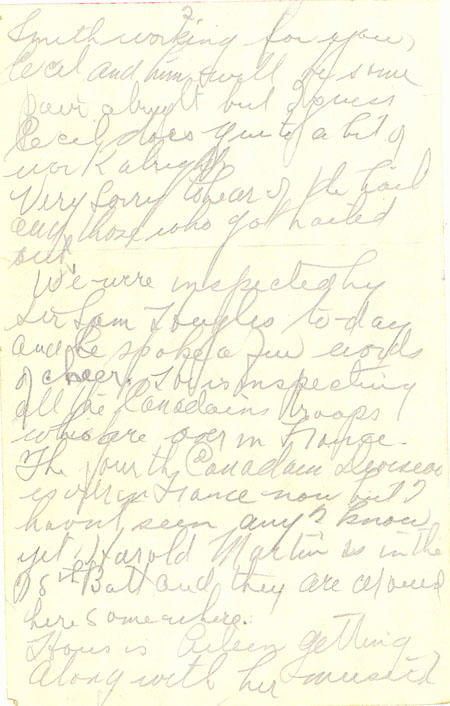 2
Smith working for you,
Cecil and him will be some
pair alright but I guess
Cecil does quite a bit of
work alright
Very sorry to hear of the hail
and those who got hailed
out.
We were inspected by
Sir Sam to-day
and he spoke a few words
of cheer. He is inspecting
all the Canadains troops
who are over in France.
The fourth Canadain Division
is over in France now but I
havnt seen any I know
yet. Harold Martin is in the
Batt and they are around
here somewhere.
Hows is Eileen getting
along with her